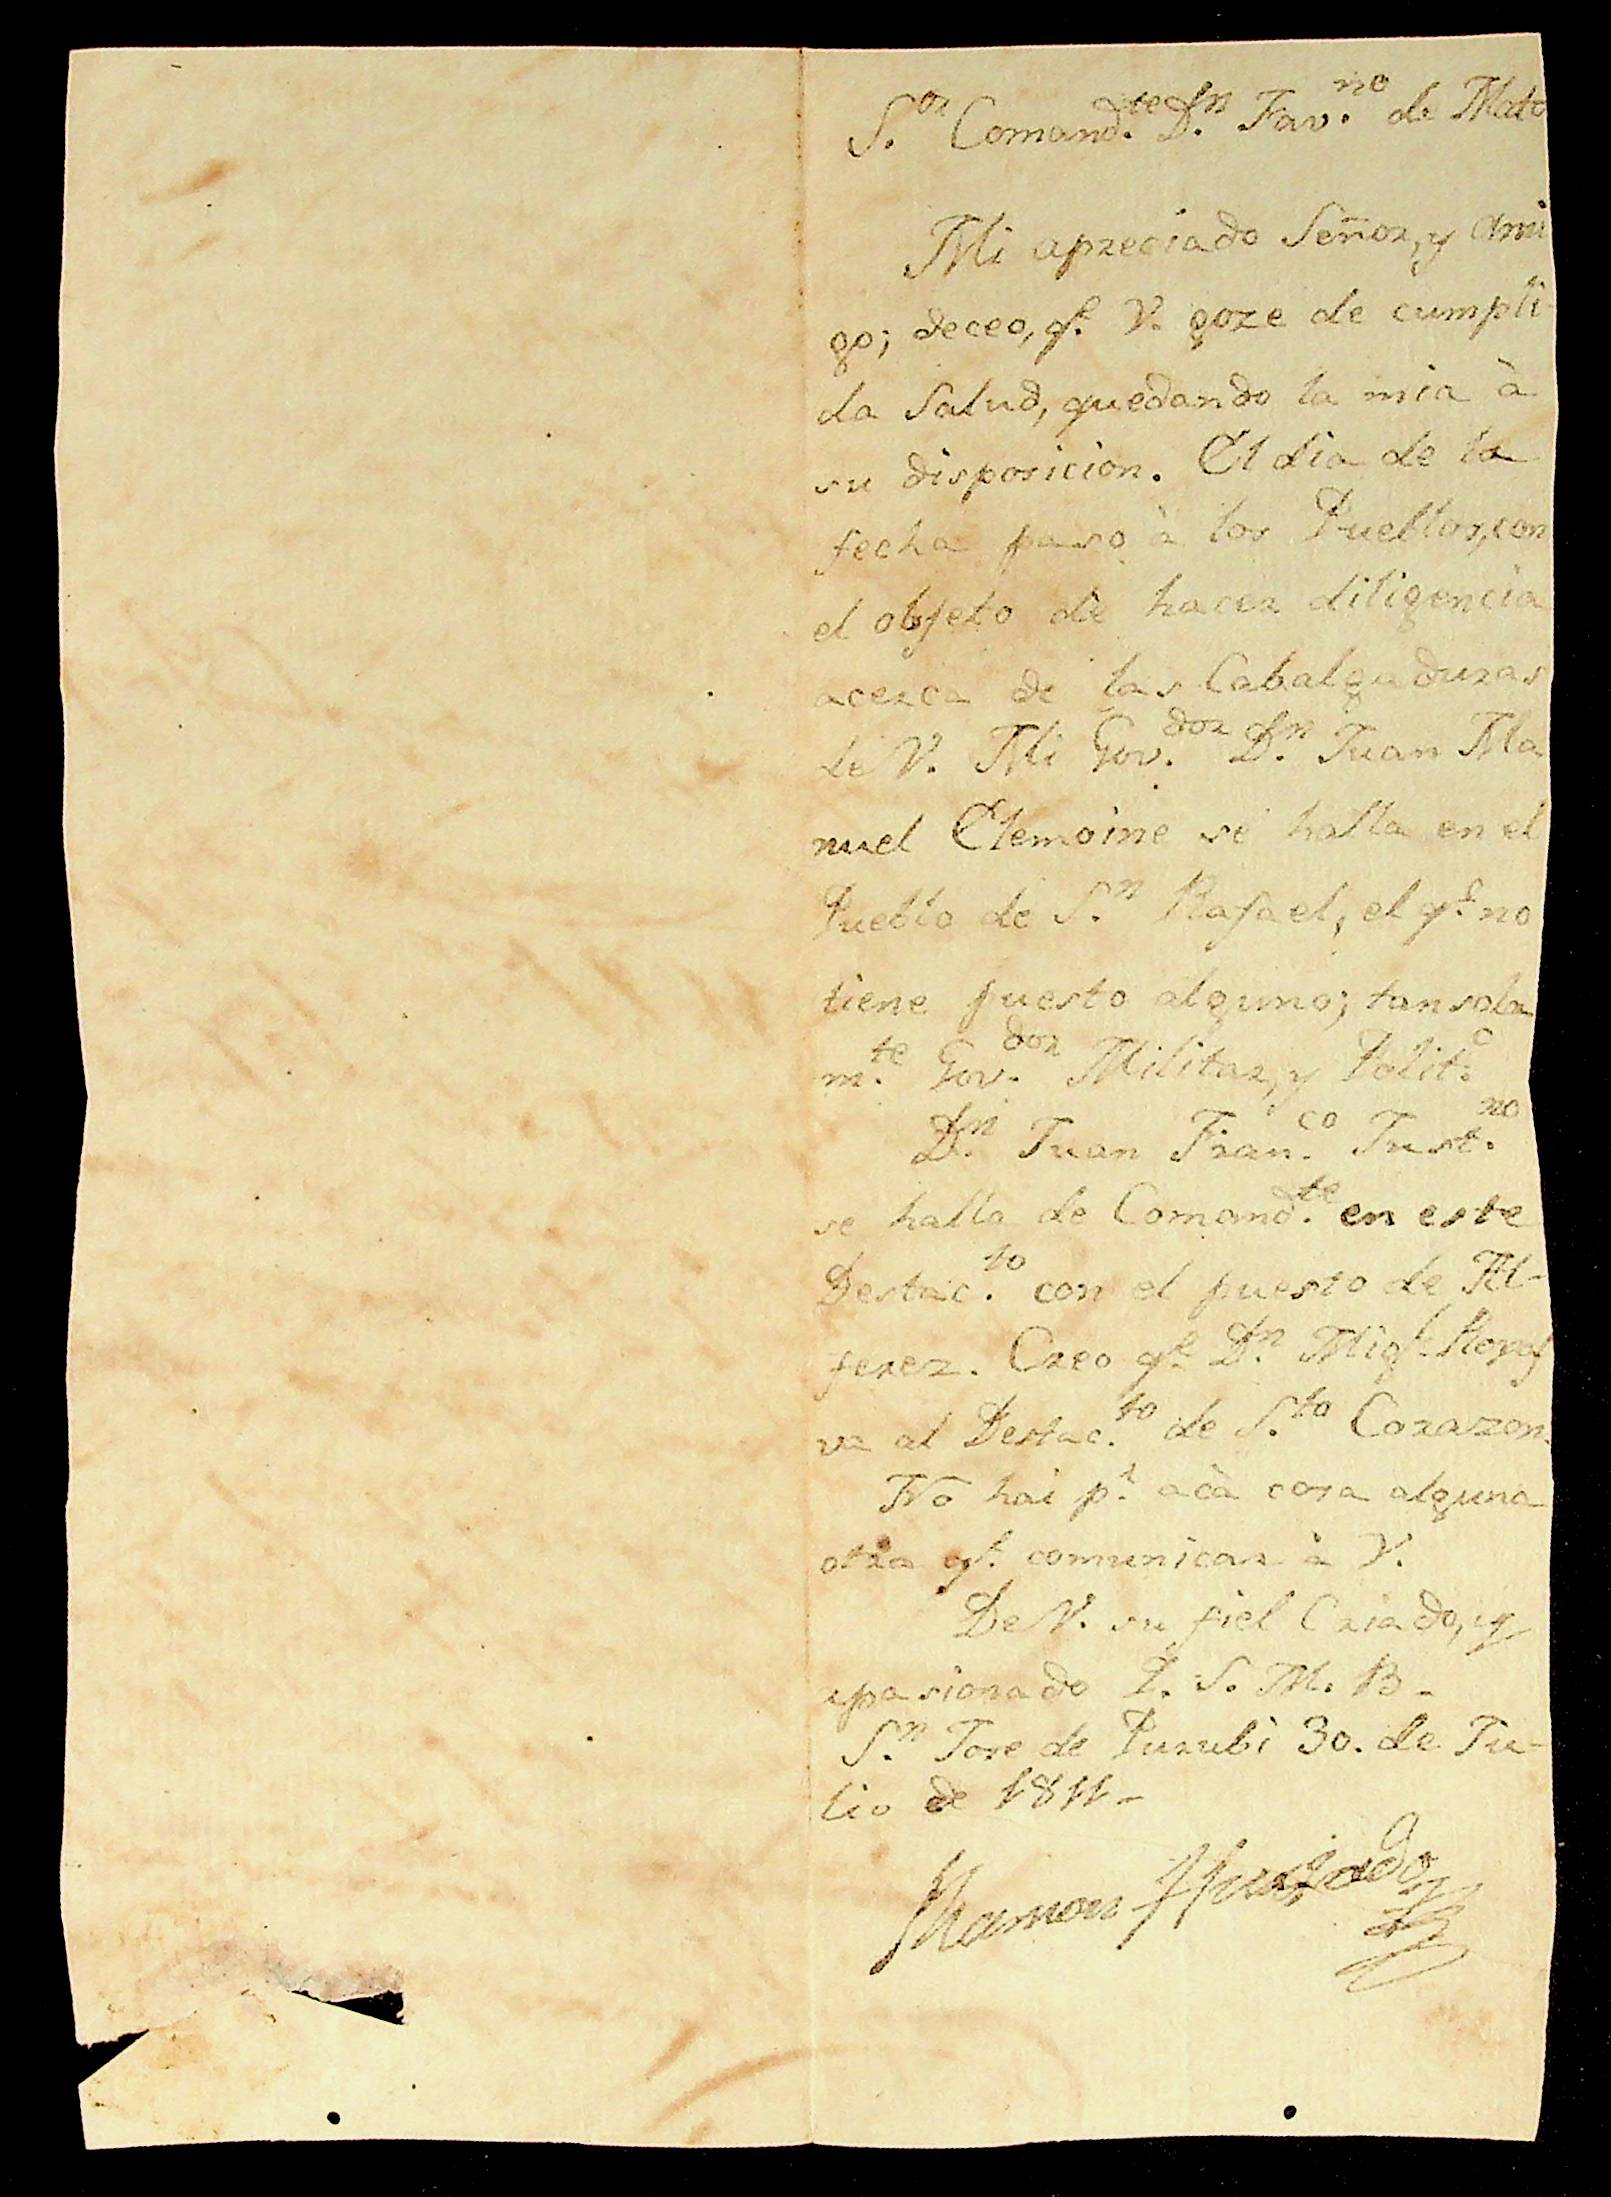 S.or Comand.te D.n Fav.no de Mato
Mi apreciado Señor, y Ami
go; deceo, q.e V. goze de cumpli-
da Salud, quedando la mia à
su disposicion. El dia de la
fecha paso à los Pueblos, con
el objeto de hacer diligencia
acerca de las Cabalgaduras
de V. Mi Gov.dor D.n Juan Ma
nuel Elemoine se halla en el
Pueblo de S.n Rafael, el q.e no
tiene puesto alguno; tan sola
m.te Gov.dor Militar, y Polit.o
D.n Juan Fran.co Just.no
se halla de Comand.te en este
Destac.to con el puesto de Al-
ferez. Creo q.e D.n Mig.l
va al Destac.to de S.to Corazon.
No hai p.r acà cosa alguna
otra q.e comunicar à V.
De V. su fiel Criado, y
apasionado Q. S. M. B.
S.n Jose de Purubì 30. de Ju-
lio de 1811-
Ramon Hurtado